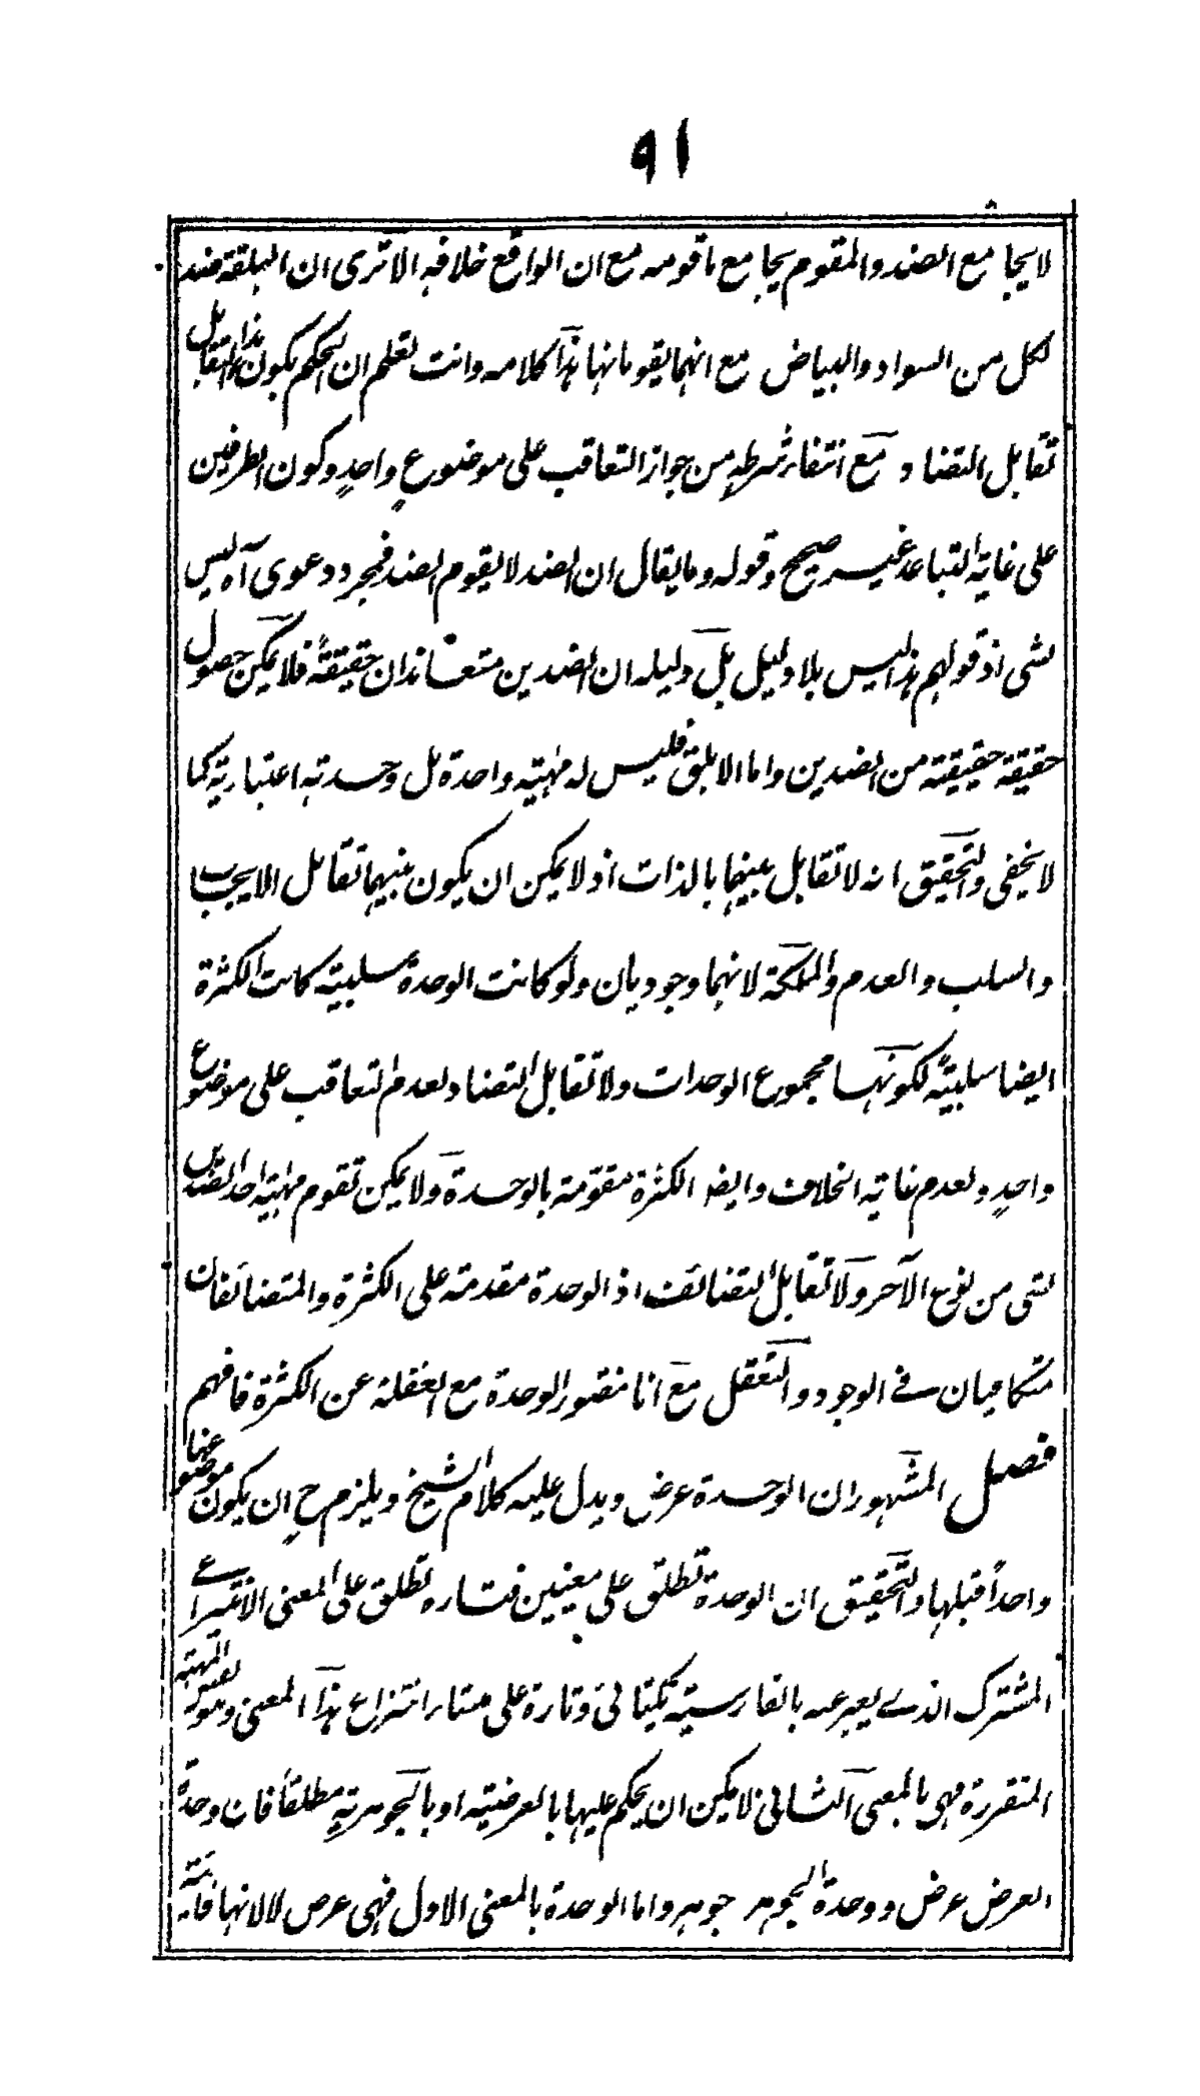 ٩١
لا يجامع الضد والمقوم يجامع ما قومه مع ان الواقع خلافه الا ترى ان البلقة ضد
لكل من السواد والبياض مع انهما يقومانها هذا كلامه وانت تعلم ان الحكم بكون هذا التقابل
تقابل التضاد مع انتفاء شرطه من جواز التعاقب على موضوع واحدٍ وكون الطرفين
على غاية التباعد غير صحيح وقوله وما يقال ان الضد لا يقوم الضد فمجرد دعوى آه ليس
بشى اذ قولهم هذا ليس بلا دليل بل دليله ان الضدين متعاندان حقيقةً فلا يمكن حصول
حقيقة حقيقية من الضدين واما الابلق فليس له مهية واحدة بل وحدته اعتبارية كما
لا يخفى والتحقيق انه لا تقابل بينهما بالذات اذ لا يمكن ان يكون بينهما تقابل الايجاب
والسلب والعدم والملكة لانهما وجوديان ولو كانت الوحدة سلبية كانت الكثرة
ايضا سلبيةً لكونها مجموع الوحدات ولا تقابل التضاد لعدم التعاقب على موضوع
واحدٍ ولعدم غاية الخلاف وايضا الكثرة متقومة بالوحدة ولا يمكن تقوم مهية احد الضدين
بشى من نوع الآخر ولا تقابل التضائف اذ الوحدة مقدمة على الكثرة والمتضائفان
متكافيان في الوجود والتعقل مع انا نتصور الوحدة مع الغفلة عن الكثرة فافهم
فصل المشهور ان الوحدة عرض ويدل عليه كلام الشيخ ويلزم ح ان يكون موضوعها
واحداً قبلها والتحقيق ان الوحدة تطلق على معنيين فتارة تطلق على المعنى الانتزاعي
المشترك الذي يعبر عنه بالفارسية بيكتائى وتارة على منشاء انتزاع هذا المعنى وهو نفس المهية
المتقررة فهي بالمعنى الثاني لا يمكن ان يحكم عليها بالعرضية او بالجوهرية مطلقاً فان وحدة
العرض عرض ووحدة الجوهر جوهر واما الوحدة بالمعنى الاول فهي عرض لا لانها قائمة